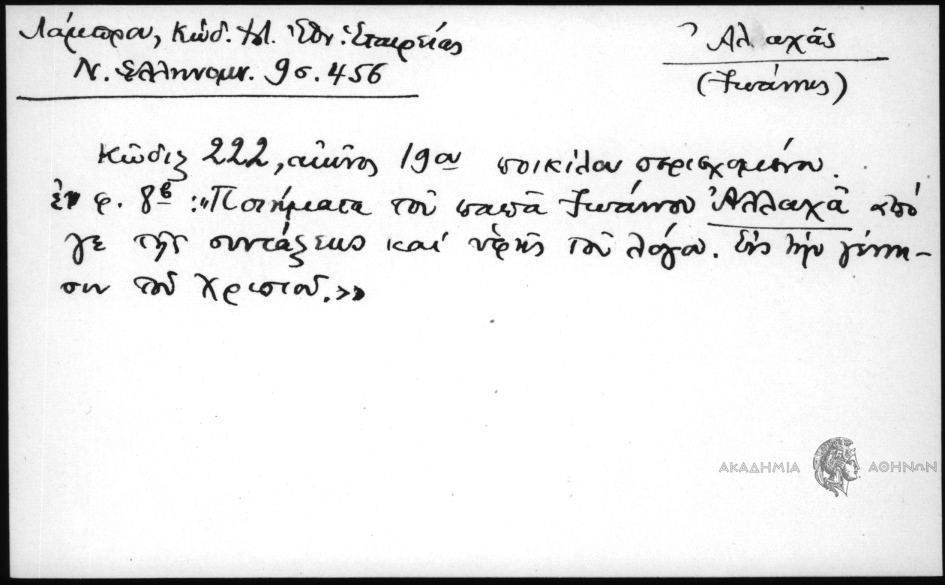 Λάμπρου, Κώδ. Ἱστ. Ἐθν. Ἑταιρείας
Ν. Ἑλληνομν. 9 σ. 456
Ἀλαχᾶς
(Ἰωάννης)
Κῶδιξ 222, αἰῶνος 19ου ποικίλου περιεχομένου.
ἐν φ. 8β : «Ποιήματα τοῦ παπᾶ Ἰωάννου Ἀλλαχᾶ ἀπό
γε τῆς συντάξεως καί ὑφῆς τοῦ λόγου. Εἰς τήν γέννη-
σιν τοῦ Χριστοῦ.»
ΑΚΑΔΗΜΙΑ ΑΘΗΝΩΝ